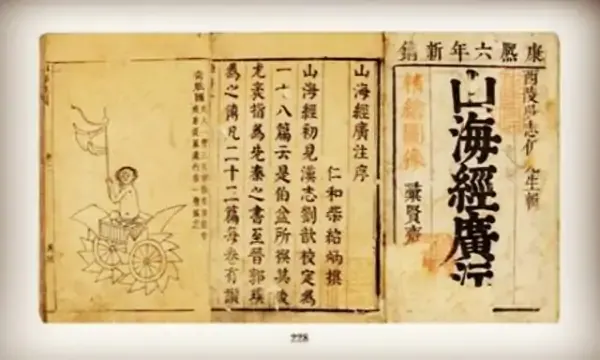 康熙六年新鐫
西陵吳志伊先生輯
山海經廣注
彙賢齋
山海經廣注序
仁和柴紹炳撰
山海經初見漢志劉歆校定為
一十八篇云是伯益所撰其後
尤袤指為先秦之書至晉郭璞
為之傳凡二十二篇每卷有讚
奇肱國
228